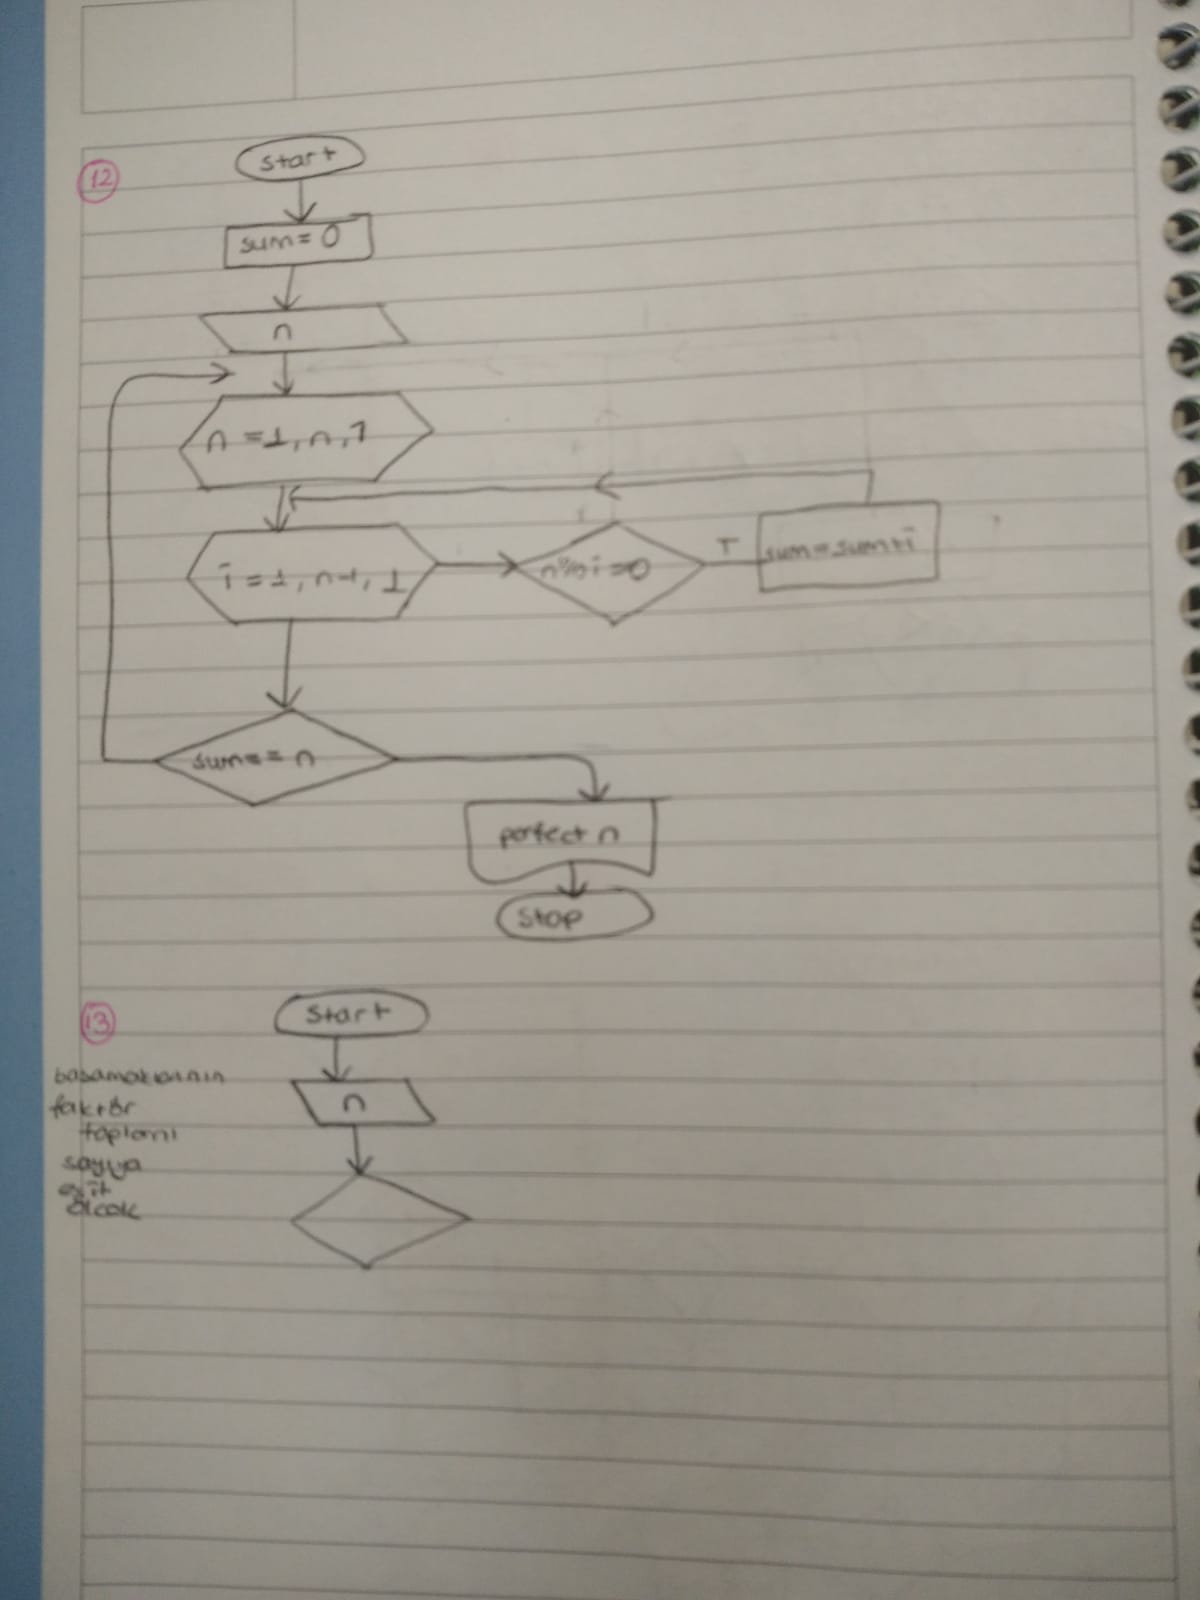 12
start
sum = 0
n
n = 1, n, 1
i = 1, n-1, 1
n%i=0
T
sum=sum+i
sum== n
perfect n
Stop
13
Start
basamaklarının
faktör
toplamı
sayıya
eşit
olcak
n